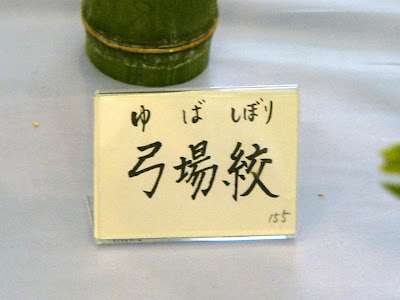 ゆばしぼり
弓場絞
155